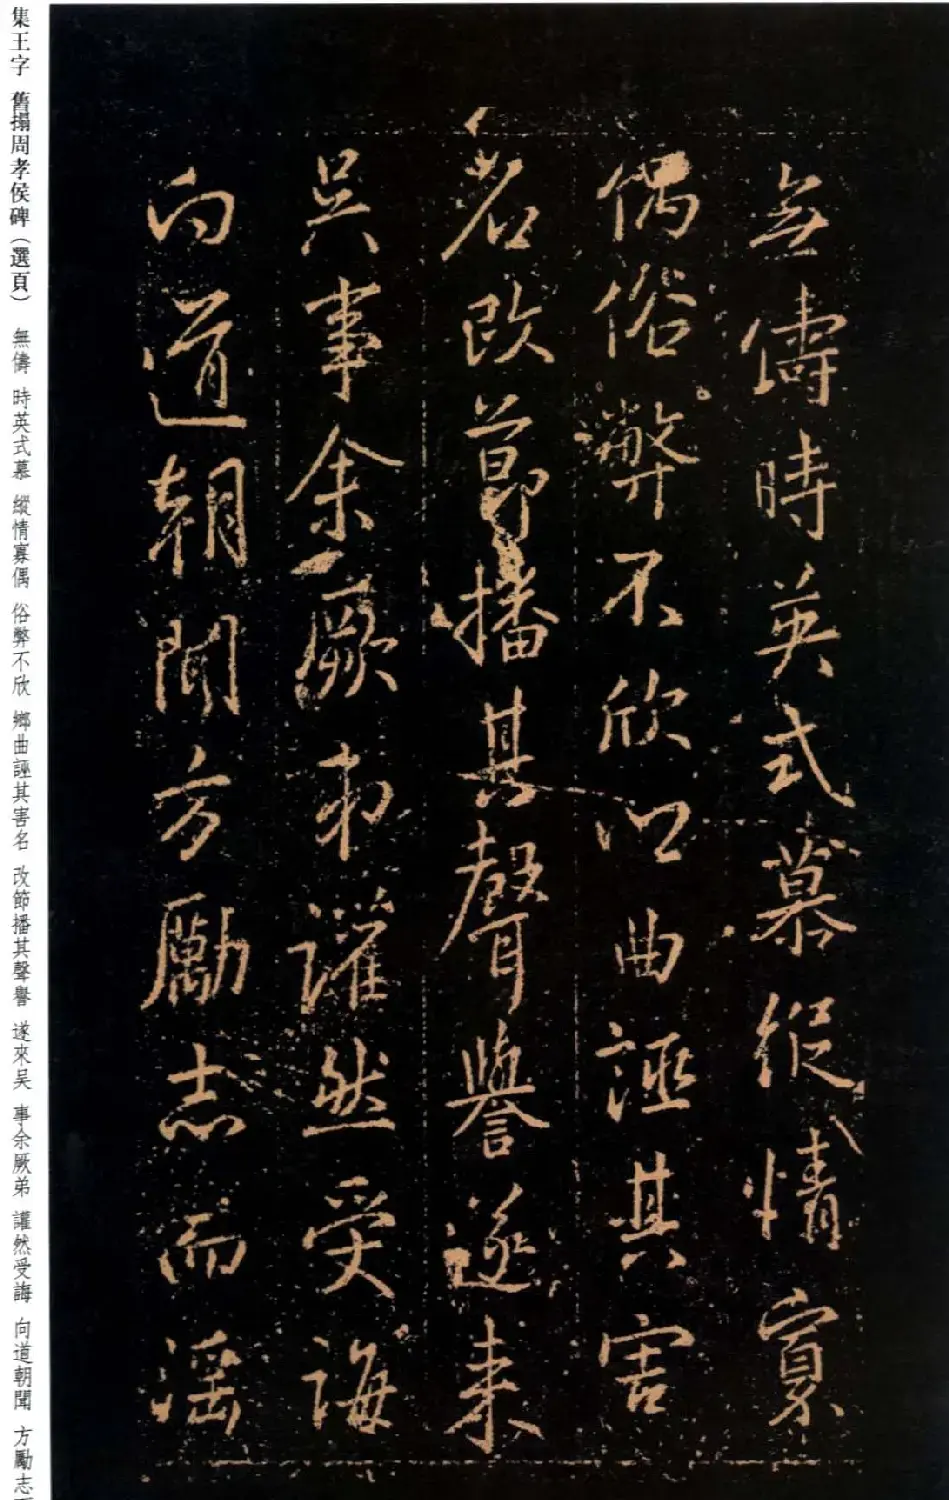 無儔時英式慕縱情寡
偶俗弊不欣鄉曲誣其害
名改節播其聲譽遂來
吳事余厥弟讙然受誨
向道朝聞方勵志而淫
集王字 舊搨周孝侯碑（選頁） 無儔 時英式慕 縱情寡偶 俗弊不欣 鄉曲誣其害名 改節播其聲譽 遂來吳 事余厥弟 讙然受誨 向道朝聞 方勵志